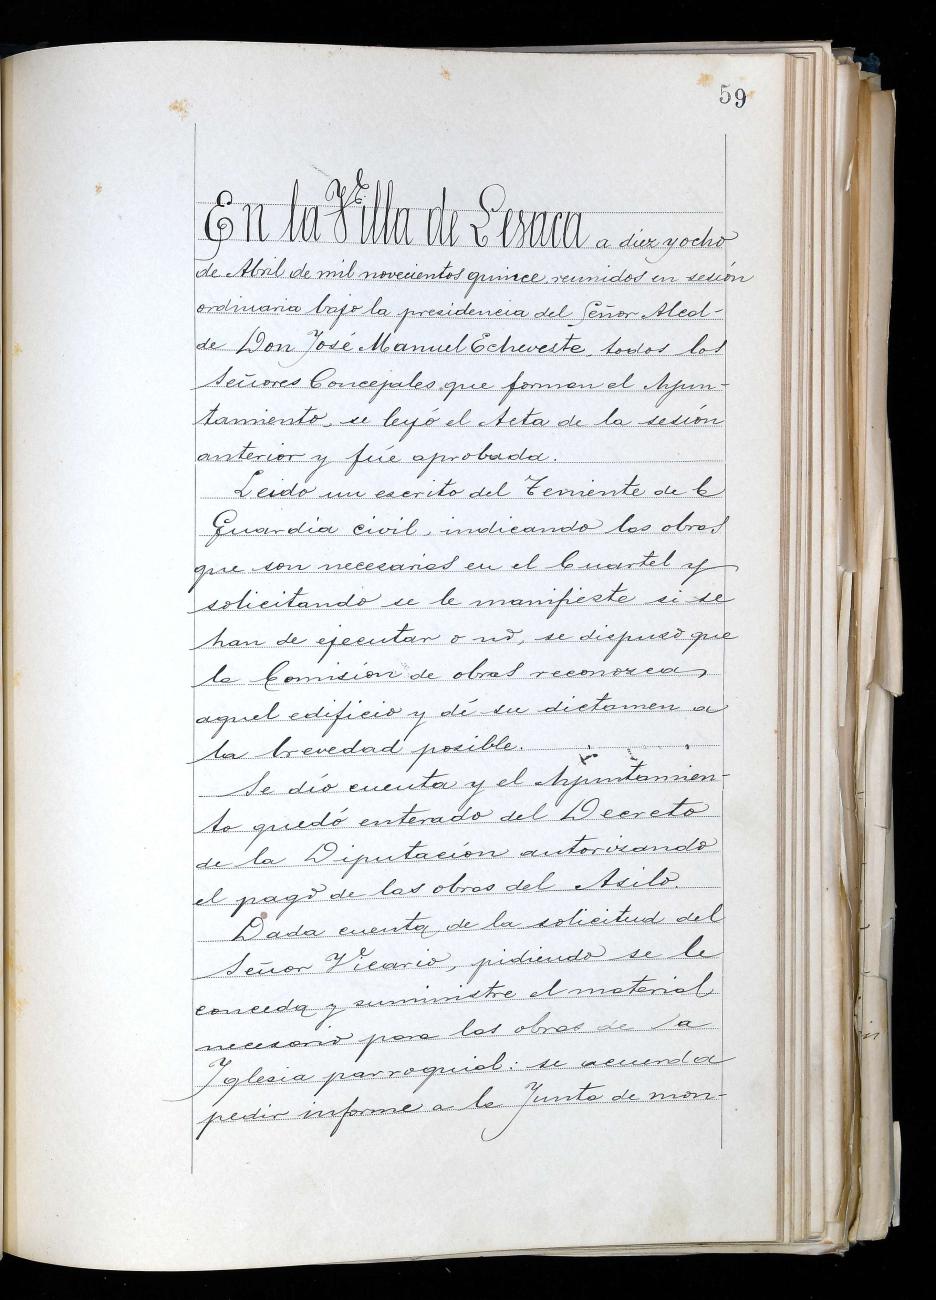 59
En la Villa de Lesaca a diez y ocho
de Abril de mil novecientos quince, reunidos en sesión
ordinaria bajo la presidencia del Señor Alcal-
de Don José Manuel Echeveste, todos los
Señores Concejales que forman el Ayun-
tamiento, se leyó el Acta de la sesión
anterior y fué aprobada.
Leido un escrito del Teniente de la
Guardia civil, indicando las obras
que son necesarias en el Cuartel y
solicitando se le manifieste si se
han de ejecutar o nó, se dispuso que
la Comisión de obras reconozca,
aquel edificio y dé su dictamen a
la brevedad posible.
Se dió cuenta y el Ayuntamien-
to quedó enterado del Decreto
de la Diputación autorizando
el pago de las obras del Asilo.
Dada cuenta de la solicitud del
Señor Vicario, pidiendo se le
conceda y suministre el material
necesario para las obras de la
Iglesia parroquial: se acuerda
pedir informe a la Junta de mon-